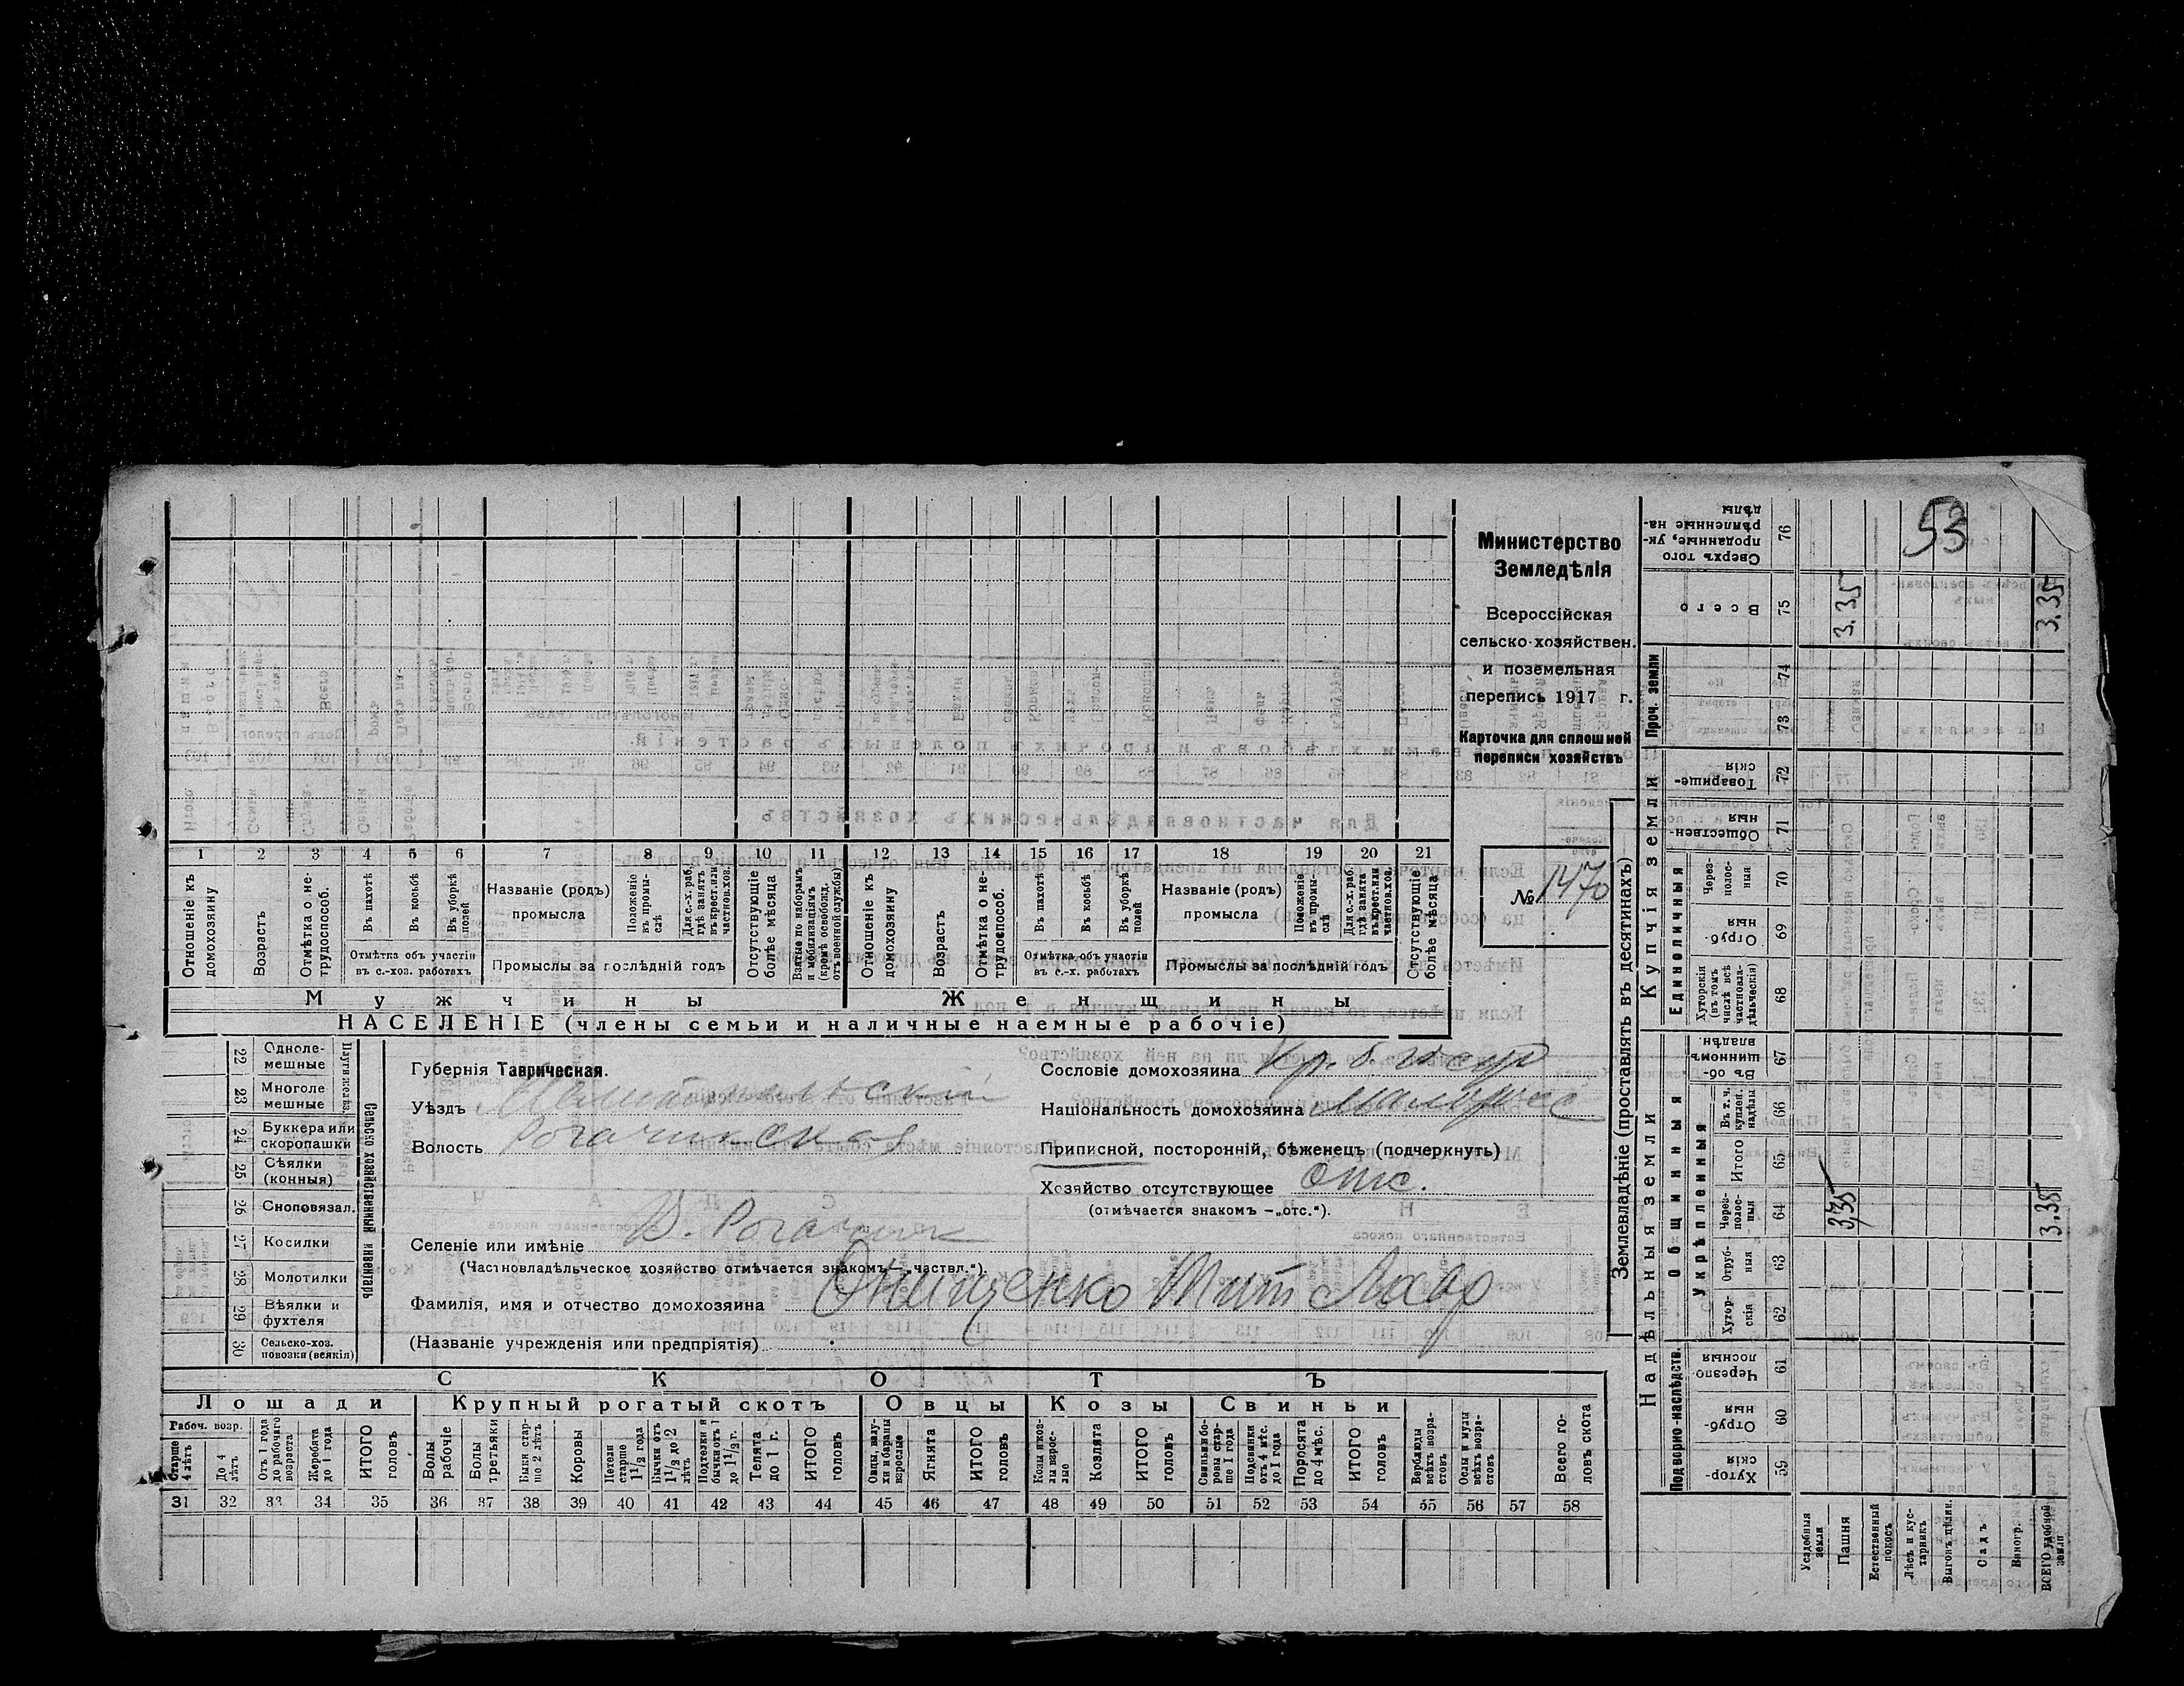 53
Министерство
Земледѣлія
Всероссійская
сельско-хозяйствен.
и поземельная
перепись 1917 г.
Карточка для сплошной
переписи хозяйствъ
№ 1470
1 2 3 4 5 6 7 8 9 10 11 12 13 14 15 16 17 18 19 20 21
Отношеніе къ домохозяину
Возрастъ
Отмѣтка о не-трудоспособ.
Въ пахотѣ
Въ косьбѣ
Въ уборкѣ полей
Отмѣтка объ участіи въ с.-хоз. работахъ
Названіе (родъ) промысла
Положеніе въ промы-слѣ
Для с.-х. раб. гдѣ занятъ въ крест. или частнов. хоз.
Промыслы за послѣдній годъ
Отсутствующіе болѣе мѣсяца
Взятые по наборамъ и мобилизаціямъ (кромѣ освобожд. отъ военной службы)
Отношеніе къ домохозяину
Возрастъ
Отмѣтка о не-трудоспособ.
Въ пахотѣ
Въ косьбѣ
Въ уборкѣ полей
Отмѣтка объ участіи въ с.-х. работахъ
Названіе (родъ) промысла
Положеніе въ промы-слѣ
Для с.-х. раб. гдѣ занята въ крест. или частнов. хоз.
Промыслы за послѣдній годъ
Отсутствующіе болѣе мѣсяца
Мужчины
Женщины
НАСЕЛЕНІЕ (члены семьи и наличные наемные рабочіе)
Сельско хозяйственный инвентарь
22 Одноле-мешные
23 Многоле мешные
24 Буккера или скоропашки
25 Сѣялки (конныя)
26 Сноповязал.
27 Косилки
28 Молотилки
29 Вѣялки и фухтеля
30 Сельско-хоз. повозки (всякія)
Губернія Таврическая.
Уѣздъ Мелитопольскій
Волость Рогачикская
Селеніе или имѣніе В. Рогачик
(Частновладѣльческое хозяйство отмѣчается знакомъ – „частвл.“).
Фамилія, имя и отчество домохозяина Онищенко Тит Лавр
(Названіе учрежденія или предпріятія)
Сословіе домохозяина Кр. б. госуд
Національность домохозяина Малорос
Приписной, посторонній, бѣженецъ (подчеркнуть)
Хозяйство отсутствующее отс.
(отмѣчается знакомъ – „отс.“).
СКОТЪ
Лошади
Крупный рогатый скотъ
Овцы
Козы
Свиньи
Рабоч. возр.
Старше 4 лѣтъ
До 4 лѣтъ
Отъ 1 года до рабочаго возраста
Жеребята до 1 года
ИТОГО головъ
Волы рабочіе
Волы третьяки
Быки стар-ше 2 лѣтъ
Коровы
Нетели старше 1 1/2 года
Бычки отъ 1 1/2 до 2 лѣтъ
Подтелки и бычки отъ 1 до 1 1/2 г.
Телята до 1 г.
ИТОГО головъ
Овцы, валу-хи и бараны взрослые
Ягнята
ИТОГО головъ
Козы и коз-лы взрос-лые
Козлята
ИТОГО головъ
Свиньи и бо-ровы стар-ше 1 года
Подсвинки отъ 4 мѣс. до 1 года
Поросята до 4 мѣс.
ИТОГО головъ
Верблюды всѣхъ возра-стовъ
Ослы и мулы всѣхъ возра-стовъ
Всего го-ловъ скота
31 32 33 34 35 36 37 38 39 40 41 42 43 44 45 46 47 48 49 50 51 52 53 54 55 56 57 58
Землевладѣніе (проставлять въ десятинахъ)
Надѣльныя земли
Купчія земли
Проч. земли
Подворно-наслѣдств.
Общинныя
Укрѣпленныя
Единоличныя
Хутор-скія 59
Отруб-ныя 60
Черезпо-лосныя 61
Хутор-скія 62
Отруб-ныя 63
Через-полос-ныя 64
Итого 65
Въ т. ч. куплен. надѣлы 66
Въ об-шинномъ владѣн. 67
Хуторскія (въ томъ числѣ всѣ частновла-дѣльческія) 68
Отруб-ныя 69
Через-полос-ныя 70
Обществен-ныя 71
Товарище-скія 72
73
74
Всего 75
Сверхъ того проданные, ук-рѣпленные на-дѣлы 76
Усадебныя земли
Пашня
Естественный покосъ
Лѣсъ и кус-тарникъ
Выгонъ, цѣлин.
Садъ
Виногр.
ВСЕГО удобной земли
3.35
3.35
3.35
3.35